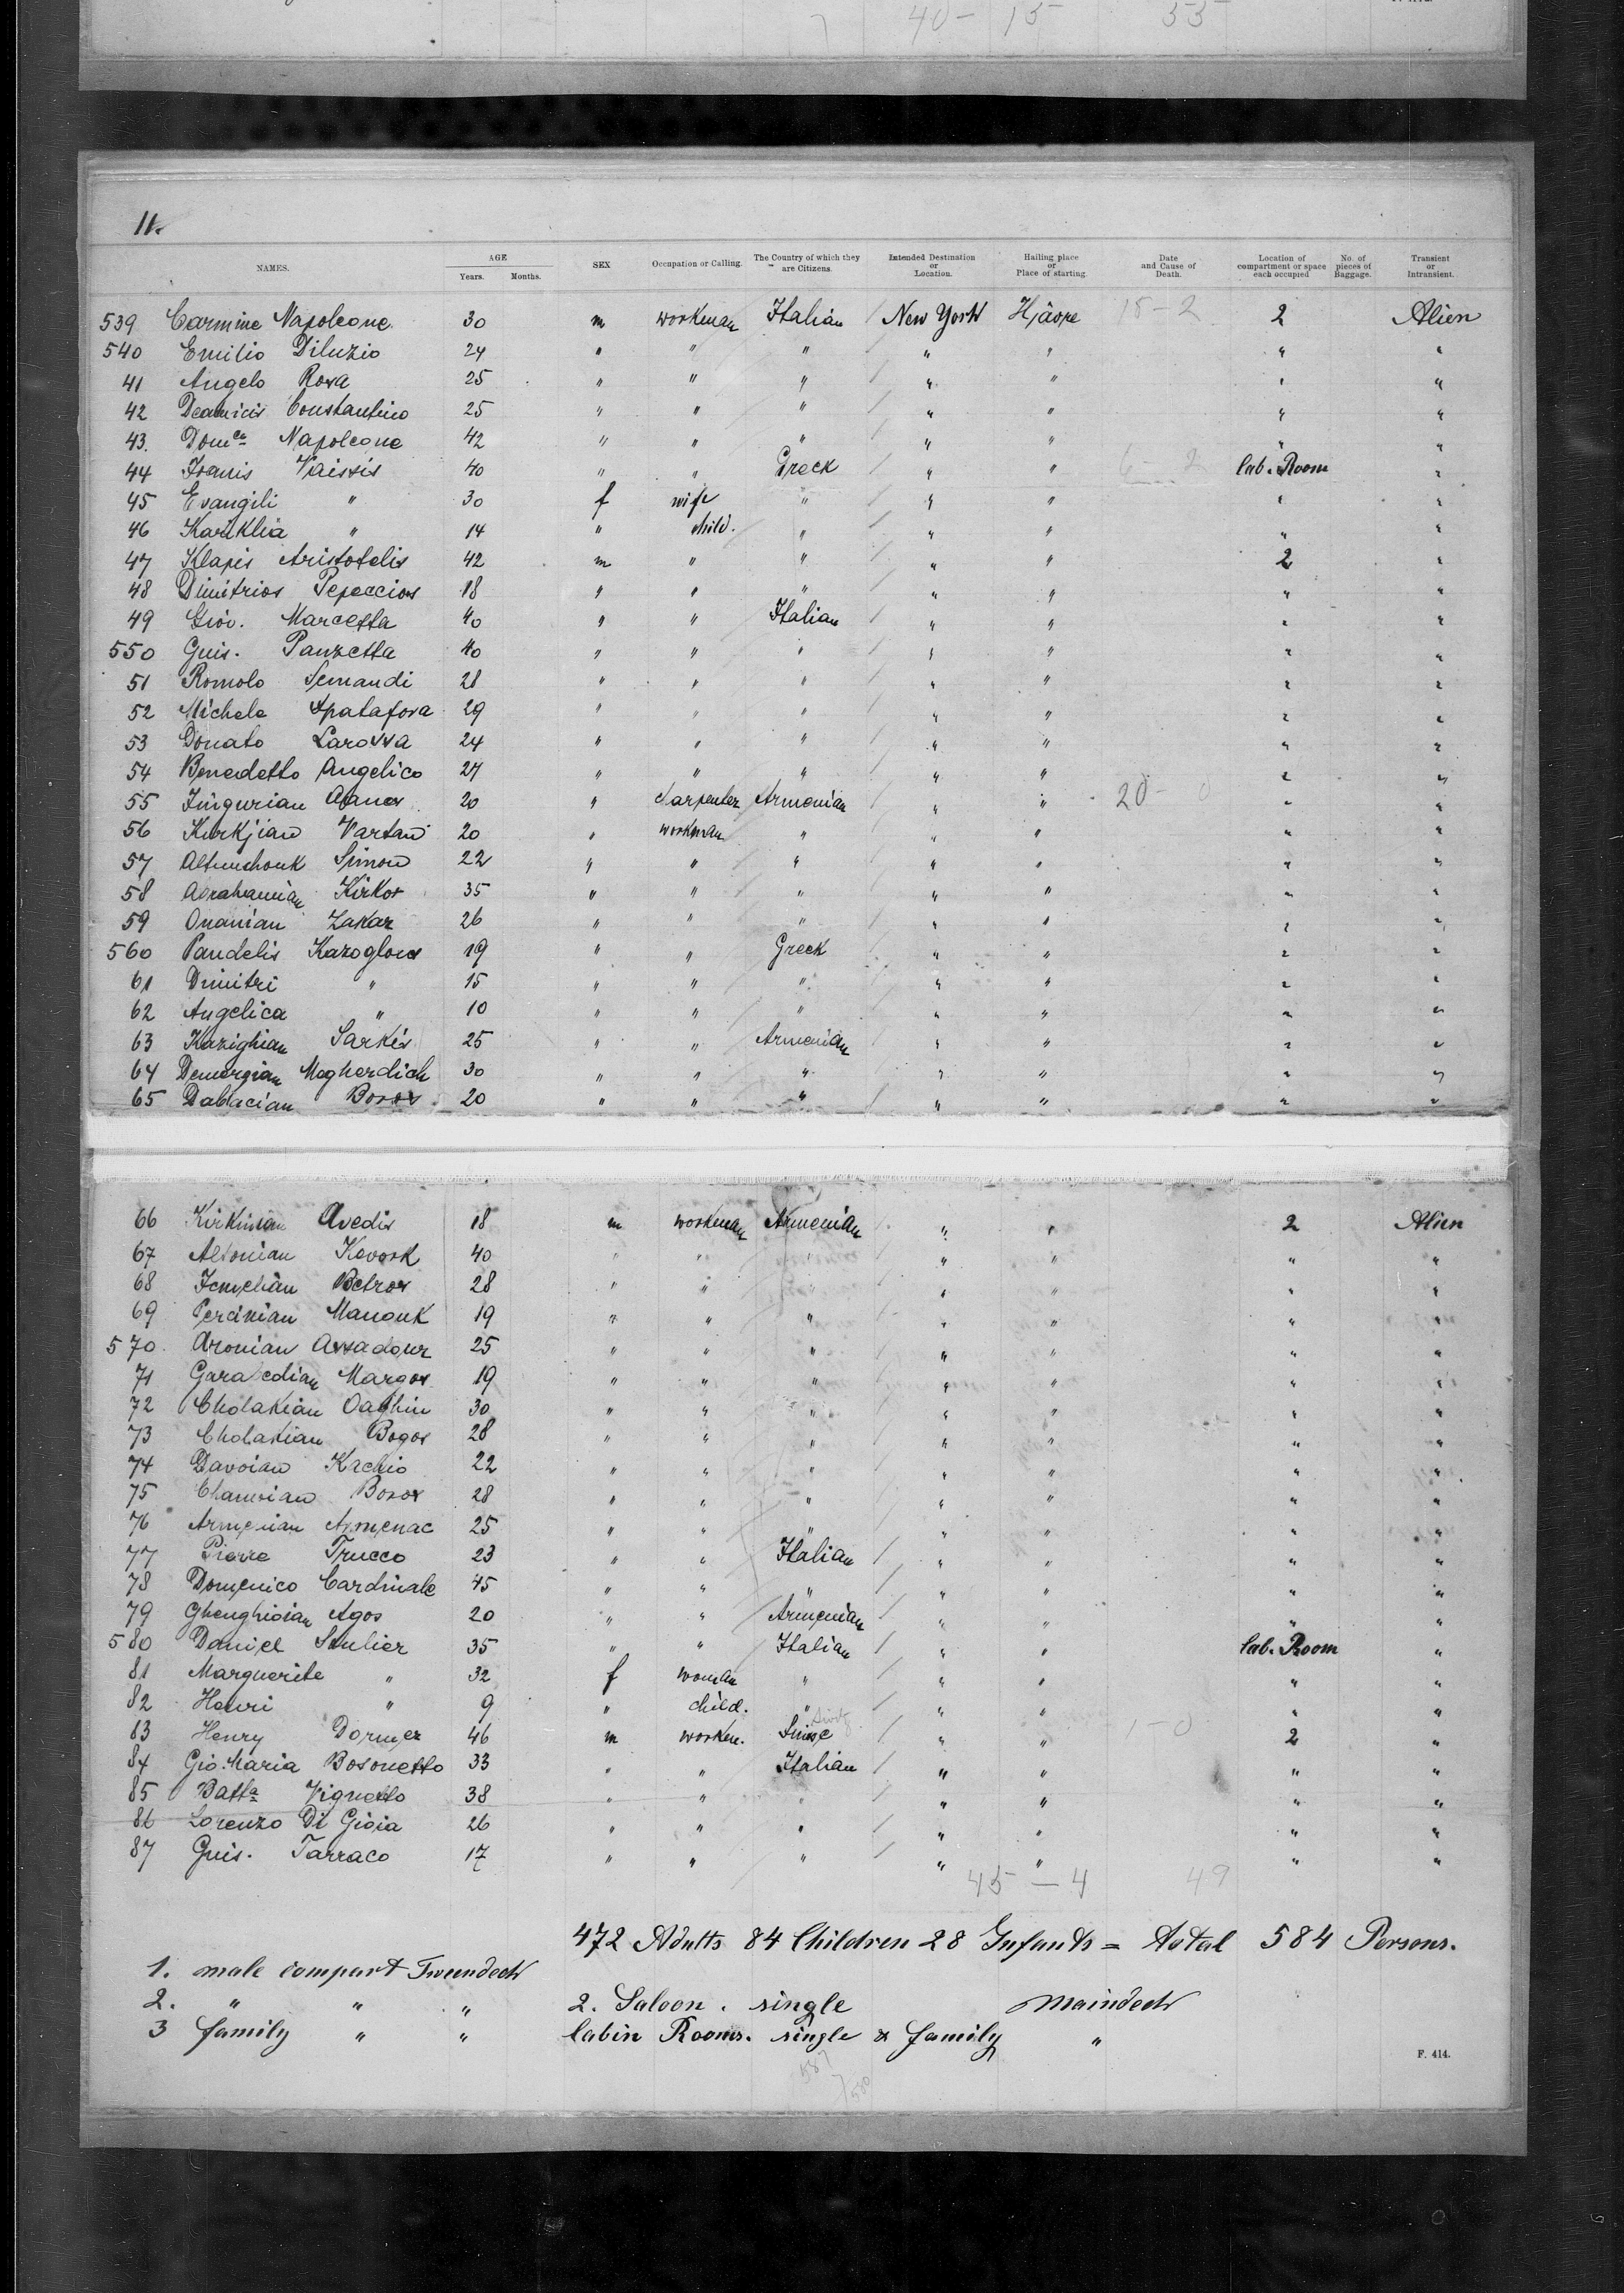 40 - 15 55
11.
NAMES. AGE Years. Months. SEX Occupation or Calling. The Country of which they are Citizens. Intended Destination or Location. Hailing place or Place of starting. Date and Cause of Death. Location of compartment or space each occupied No. of pieces of Baggage. Transient or Intransient.
539 Carmine Napoleone 30 m workman Italian / New York Hâvre 18-2 2 Alien
540 Emilio Diluzio 24 " " " / " " " "
41 Angelo Rosa 25 " " " / " " " "
42 Deamicis Constantino 25 " " " / " " " "
43. Domca Napoleone 42 " " " / " " " "
44 Ioanis Vaissis 40 " " Greck / " " 6-2 Cab. Room "
45 Evangili " 30 f wife " / " " " "
46 Kariklia " 14 " child. " / " " " "
47 Klapis Aristotelis 42 m " " / " " 2 "
48 Dimitrios Pepeccios 18 " " " / " " " "
49 Giov. Marcetta 40 " " Italian / " " " "
550 Guis. Panzetta 40 " " " / " " " "
51 Romolo Semandi 28 " " " / " " " "
52 Michele Spatafora 29 " " " / " " " "
53 Donato Larossa 24 " " " / " " " "
54 Benedetto Angelico 27 " " " / " " " "
55 Jingurian 20 " Carpenter Armenian / " " 20-0 " "
56 Kurkjian Vartan 20 " workman " / " " " "
57 Altunchouk Simon 22 " " " / " " " "
58 Abrahamian Kirkor 35 " " " / " " " "
59 Onanian Zakar 26 " " " / " " " "
560 Pandelis Kazoglous 19 " " Greek / " " " "
61 Dimitri " 15 " " " / " " " "
62 Angelica " 10 " " " / " " " "
63 Kazighian Sarkis 25 " " Armenian / " " " "
64 Demergian Megherdich 30 " " " / " " " "
65 Dablacian Bosos 20 " " " / " " " "
66 Kirkinian Avedis 18 m workman Armenian / " " 2 Alien
67 Altonian Kevork 40 " " " / " " " "
68 Jemelian Betros 28 " " " / " " " "
69 Percinian Manouk 19 " " " / " " " "
570. Aronian Assadour 25 " " " / " " " "
71 Garabedian Margos 19 " " " / " " " "
72 Cholakian Oaghin 30 " " " / " " " "
73 Cholakian Bogos 28 " " " / " " " "
74 Davoian Kachio 22 " " " / " " " "
75 Chamsian Bosos 28 " " " / " " " "
76 Armenian Armenac 25 " " " / " " " "
77 Pierre Trucco 23 " " Italian / " " " "
78 Domenico Cardinale 45 " " " / " " " "
79 Ghenghioian Agos 20 " " Armenian / " " " "
580 Daniel Soulier 35 " " Italian / " " Cab. Room "
81 Marguerite " 32 f woman " / " " " "
82 Henri " 9 " child. " / " " " "
83 Henry Dormer 46 m workm. Suisse / " " 1-0 2 "
84 Gio. Maria Bosonetto 33 " " Italian / " " " "
85 Batta Vignetto 38 " " " / " " " "
86 Lorenzo Di Gioia 26 " " " / " " " "
87 Guis. Tarraco 17 " " " / " " " "
45 - 4 49
472 Adults 84 Children 28 Infants = total 584 Persons.
1. male compart Tweendeck
2. " " " 2. Saloon. single Maindeck
3 family " " Cabin Rooms. single & family "
587
F. 414.